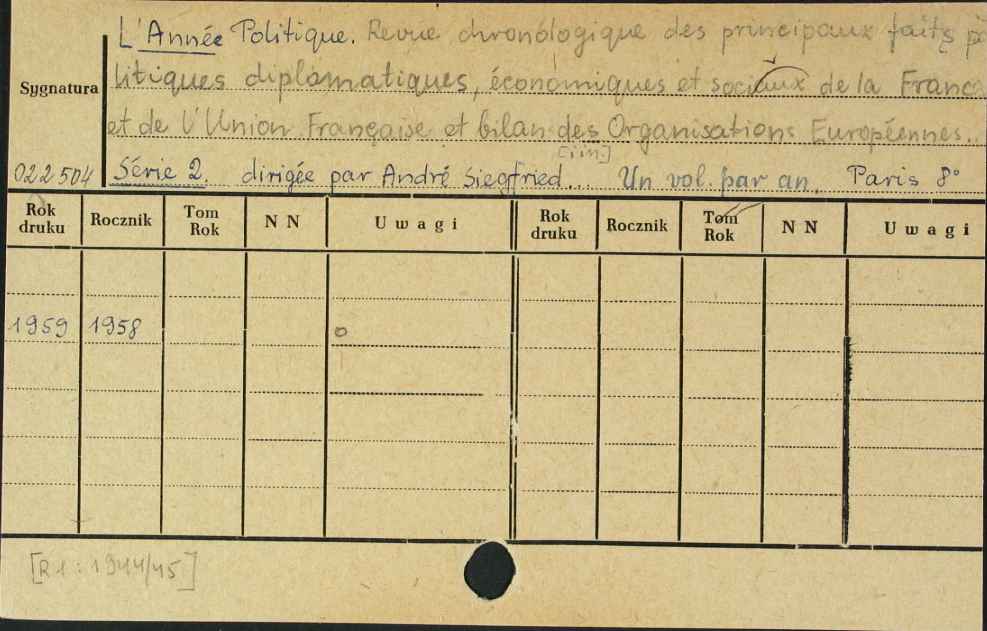 L'Année Politique. Revue chronologique des principaux faits po
litiques diplomatiques, économiques et sociaux de la Franc
et de l'Union Française et bilan des Organisations Européennes.
[i in.]
Sygnatura
022504 Série 2. dirigée par André Siegfried... Un vol. par an. Paris 8°
Rok druku Rocznik Tom Rok NN Uwagi Rok druku Rocznik Tom Rok NN Uwagi
1959 1958 o
[R 1 : 1944/45]